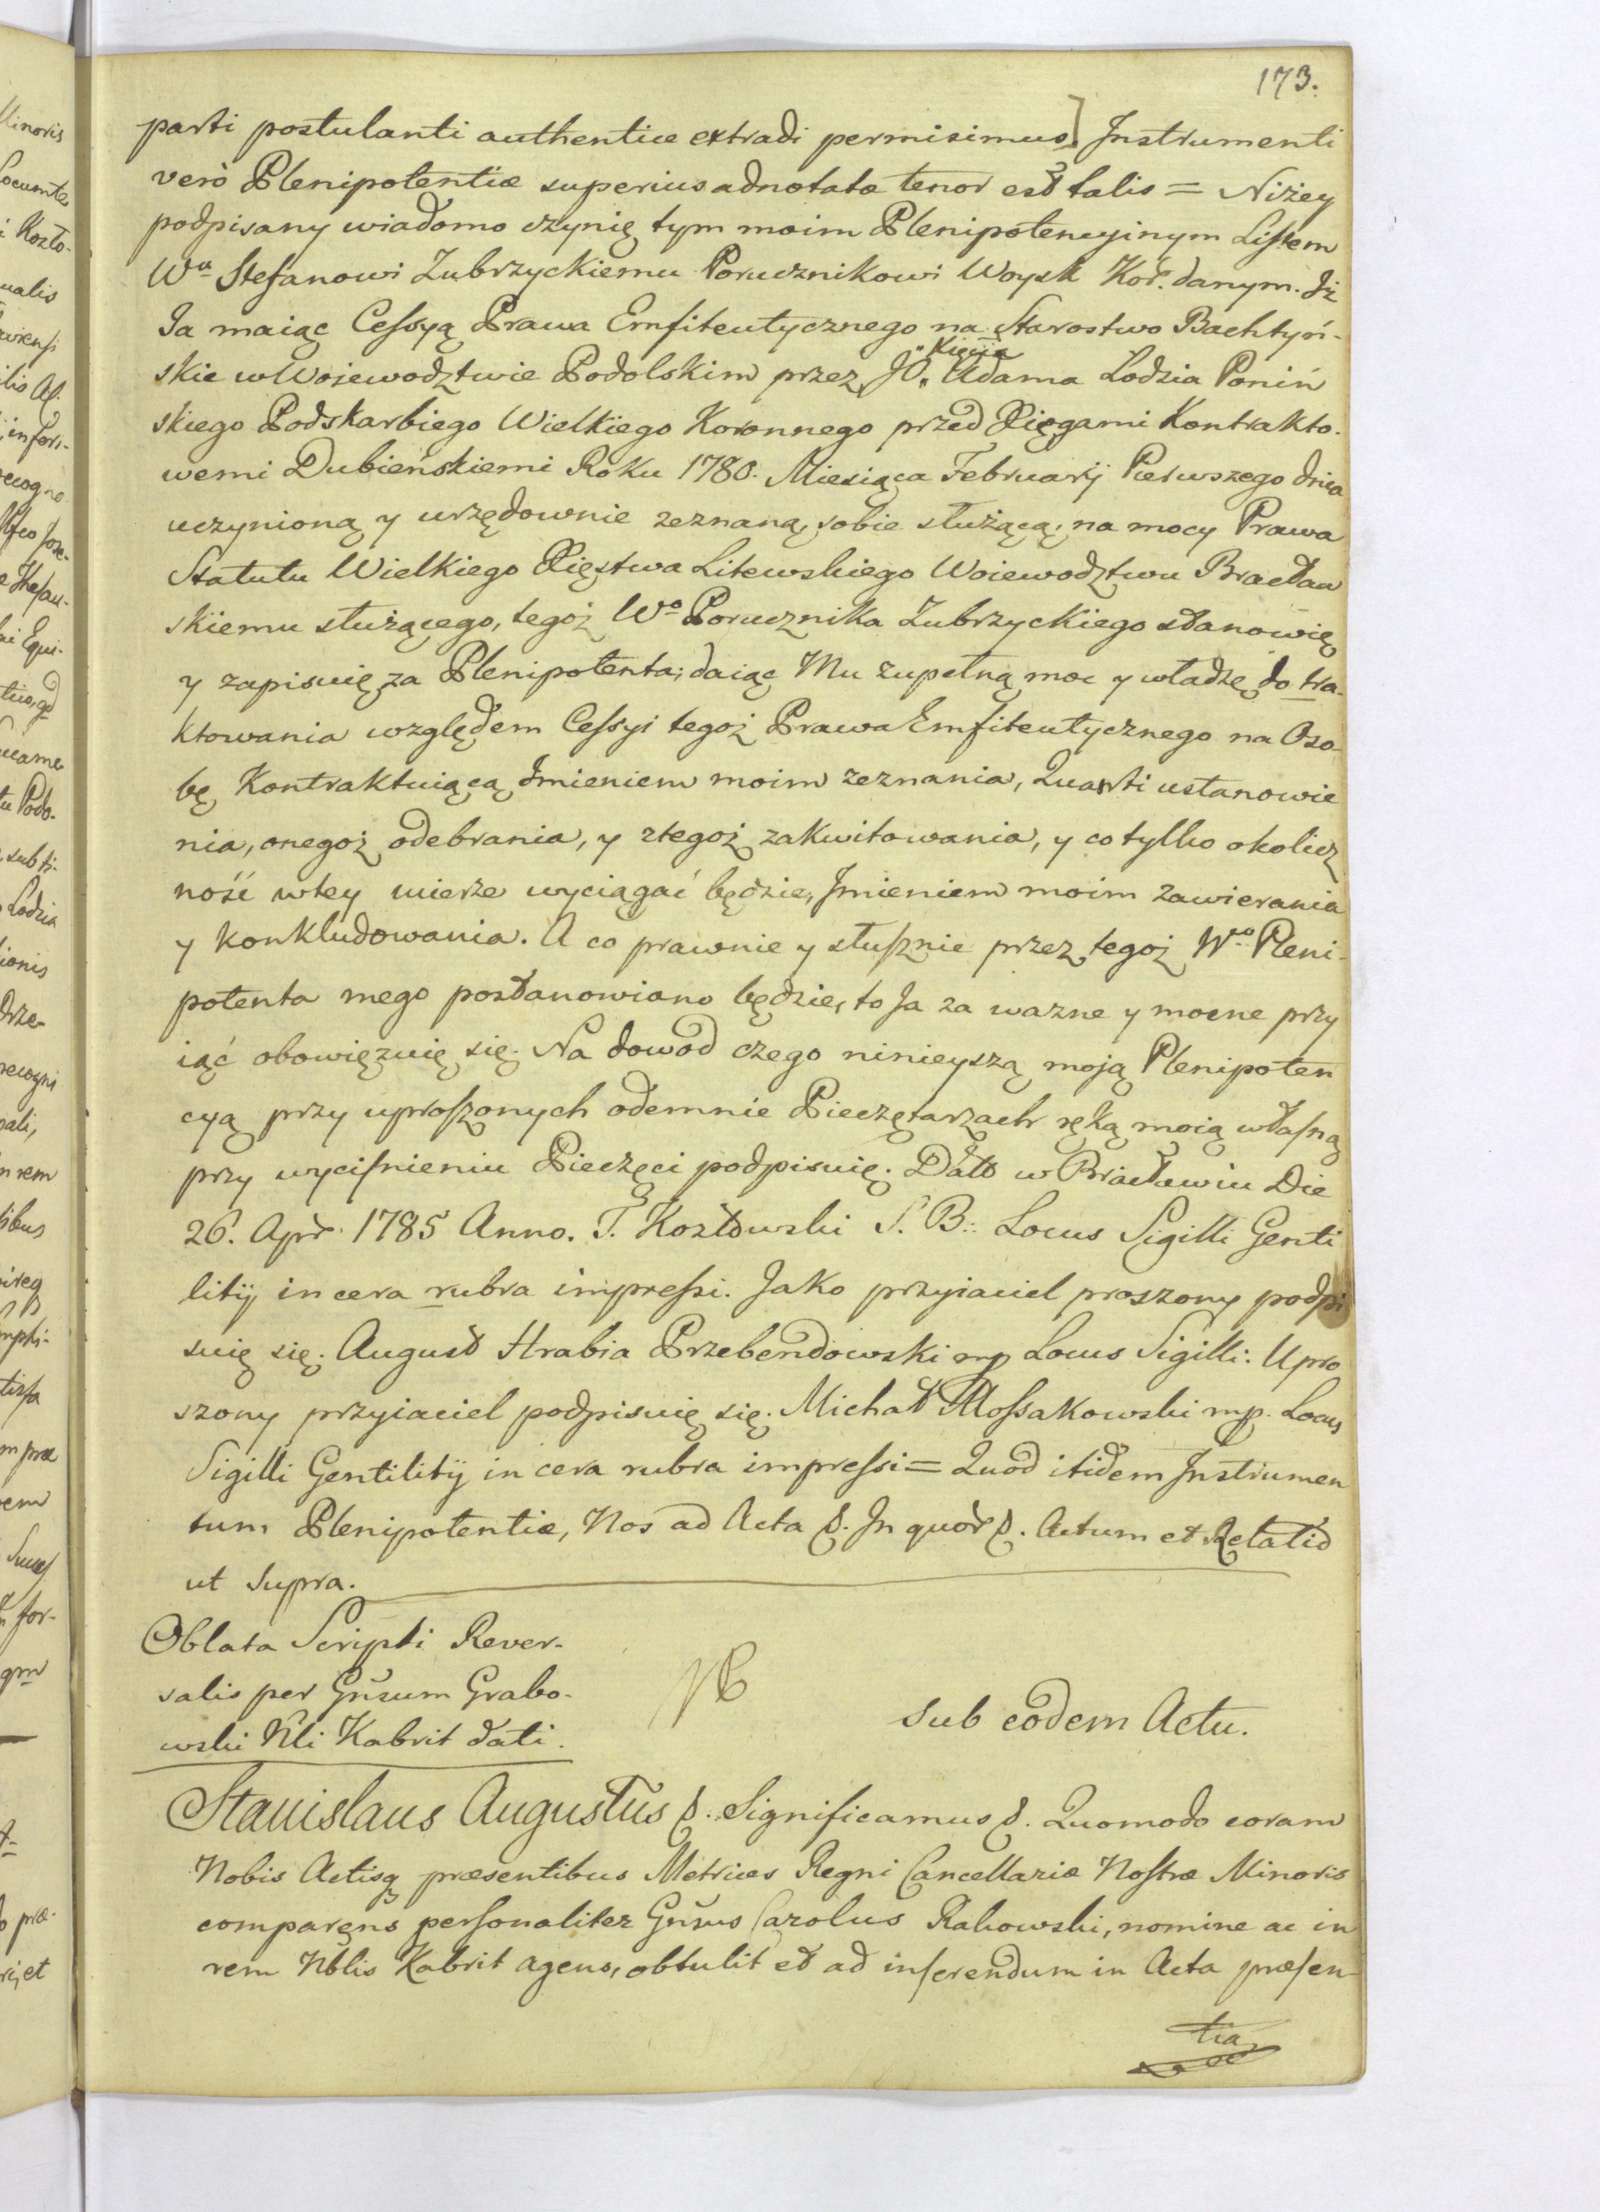 173.
parti postulanti authentice extradi permisimus] Instrumenti
verò Plenipotentiæ superius adnotatæ tenor est talis = Niżey
podpisany wiadomo czynię tym moim Plenipotencyinym Listem
W<sup>u</sup> Stefanowi Zubrzyckiemu Porucznikowi Woysk Kor. danym. Iż
Ja maiąc Cessyą Prawa Emfiteutycznego na Starostwo Bachtyń-
skie w Wojewodztwie Podolskim przez JO. Xięcia Adama Lodzia Poniń
skiego Podskarbiego Wielkiego Koronnego przed Xięgami Kontrakto-
wemi Dubieńskiemi Roku 1780. Miesiąca Februarij Pierwszego dnia
uczynioną y urzędownie zeznaną, sobie służącą; na mocy Prawa
Statutu Wielkiego Xięstwa Litewskiego Woiewodztwu Bracław
skiemu służącego, tegoż W<sup>o</sup> Porucznika Zubrzyckiego stanowię
y zapisuię za Plenipotenta; daiąc Mu zupełną moc y władzę do tra-
ktowania względem Cessyi tegoż Prawa Emfiteutycznego na Oso
bę Kontraktuiącą Imieniem moim zeznania, Quarti ustanowie
nia, onegoż odebrania, y ztegoż zakwitowania, y co tylko okolicz
ność wtey mierze wyciągać będzie, Imieniem moim zawierania
y konkludowania. A co prawnie y słusznie przez tegoż W<sup>o</sup> Pleni-
potenta mego postanowiano będzie, to Ja za wazne y mocne przy
iąć obowięzuię się. Na dowod czego ninieyszą moją Plenipoten
cyą przy uproszonych odemnie Pieczętarzach ręką moią własną
przy wycisnieniu Pieczęci podpisuię. Datt w Bracławiu Die
26. Apr. 1785 Anno. T. Kozłowski S. B: Locus Sigilli Genti
litij in cera rubra impressi. Jako przyiaciel proszony podpi
suię się. August Hrabia Przebendowski mp Locus Sigilli: Upro
szony przyiaciel podpisuię się. Michał Mossakowski mp. Locus
Sigilli Gentilitij in cera rubra impressi = Quod itidem Instrumen
tum Plenipotentiæ, Nos ad Acta &. In quor &. Actum et Relatio
ut supra.
Oblata Scripti Rever-
salis per Gnsum Grabo-
wski Nli Kabrit dati.
sub eodem Actu.
Stanislaus Augustus &. Significamus &. Quomodo coram
Nobis Actisq præsentibus Metrices Regni Cancellariæ Nostræ Minoris
comparens personaliter Gnsus Carolus Rakowski, nomine ac in
rem Nblis Kabrit agens, obtulit et ad inserendum in Acta præsen-
tia